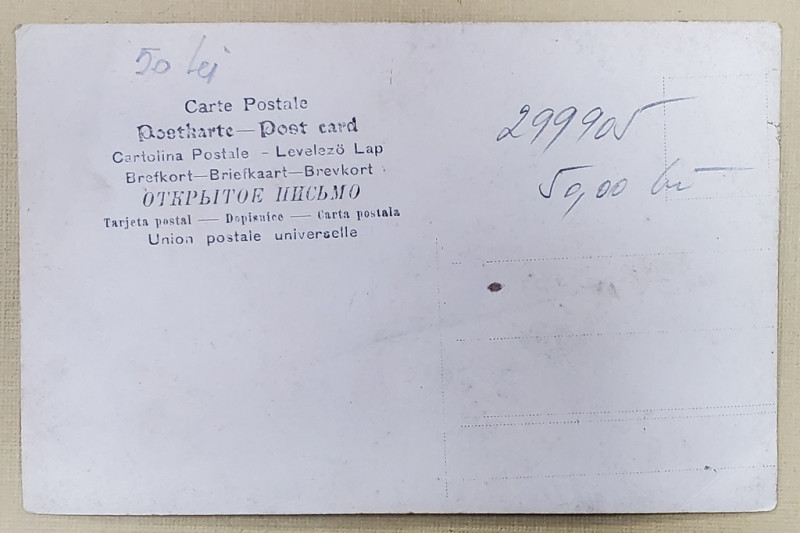 50 lei
Carte Postale
Postkarte—Post card
Cartolina Postale - Levelezö Lap
Brefkort—Briefkaart—Brevkort
ОТКРЫТОЕ ПИСЬМО
Tarjeta postal — Dopisnice — Carta postala
Union postale universelle
299905
50,00 lei